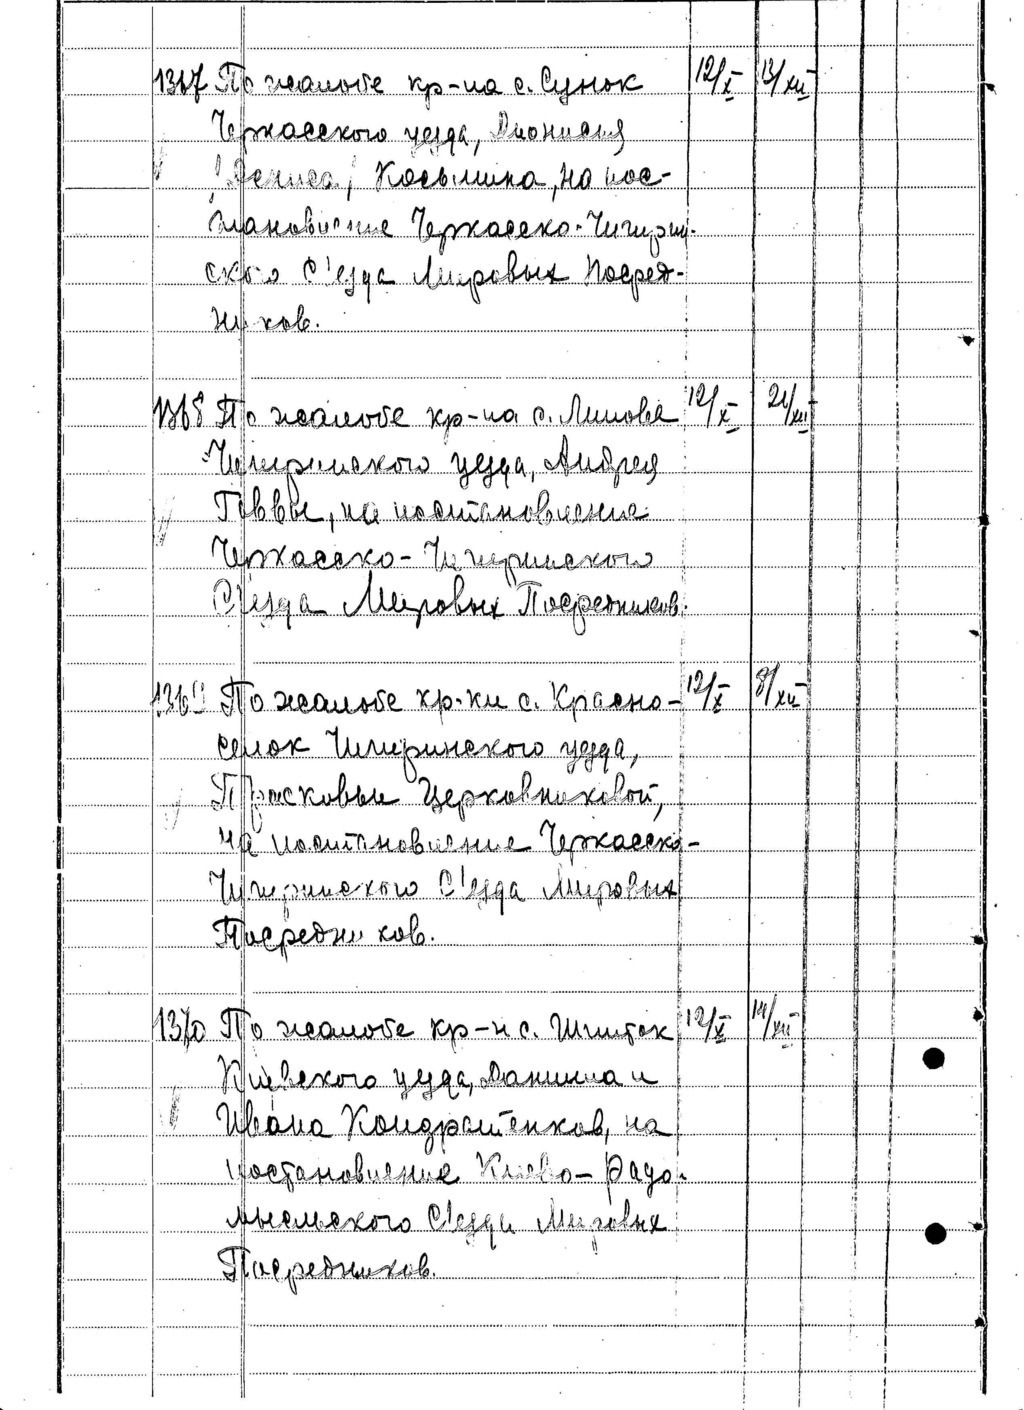 1367 По жалобе кр-на с. Сунок 12/X 13/XII
Черкасского уезда, Дионисия
/Дениса/ Косьмина, на пос-
тановление Черкасско-Чигирин-
ского С'езда Мировых Посред-
ников.
1368 По жалобе кр-на с. Липове 12/X 21/XII
Чигиринского уезда, Андрея
Геввы, на постановление
Черкасско-Чигиринского
С'езда Мировых Посредников.
1369 По жалобе кр-ки с. Красно- 12/X 8/XII
селок Чигиринского уезда,
Прасковьи Церковниковой,
на постановление Черкасско-
Чигиринского С'езда Мировых
Посредников.
1370 По жалобе кр-н с. Шпиток 12/X 14/XII
Киевского уезда, Даниила и
Ивана Кондратенков, на
постановление Киево-Радо-
мысльского С'езда Мировых
Посредников.